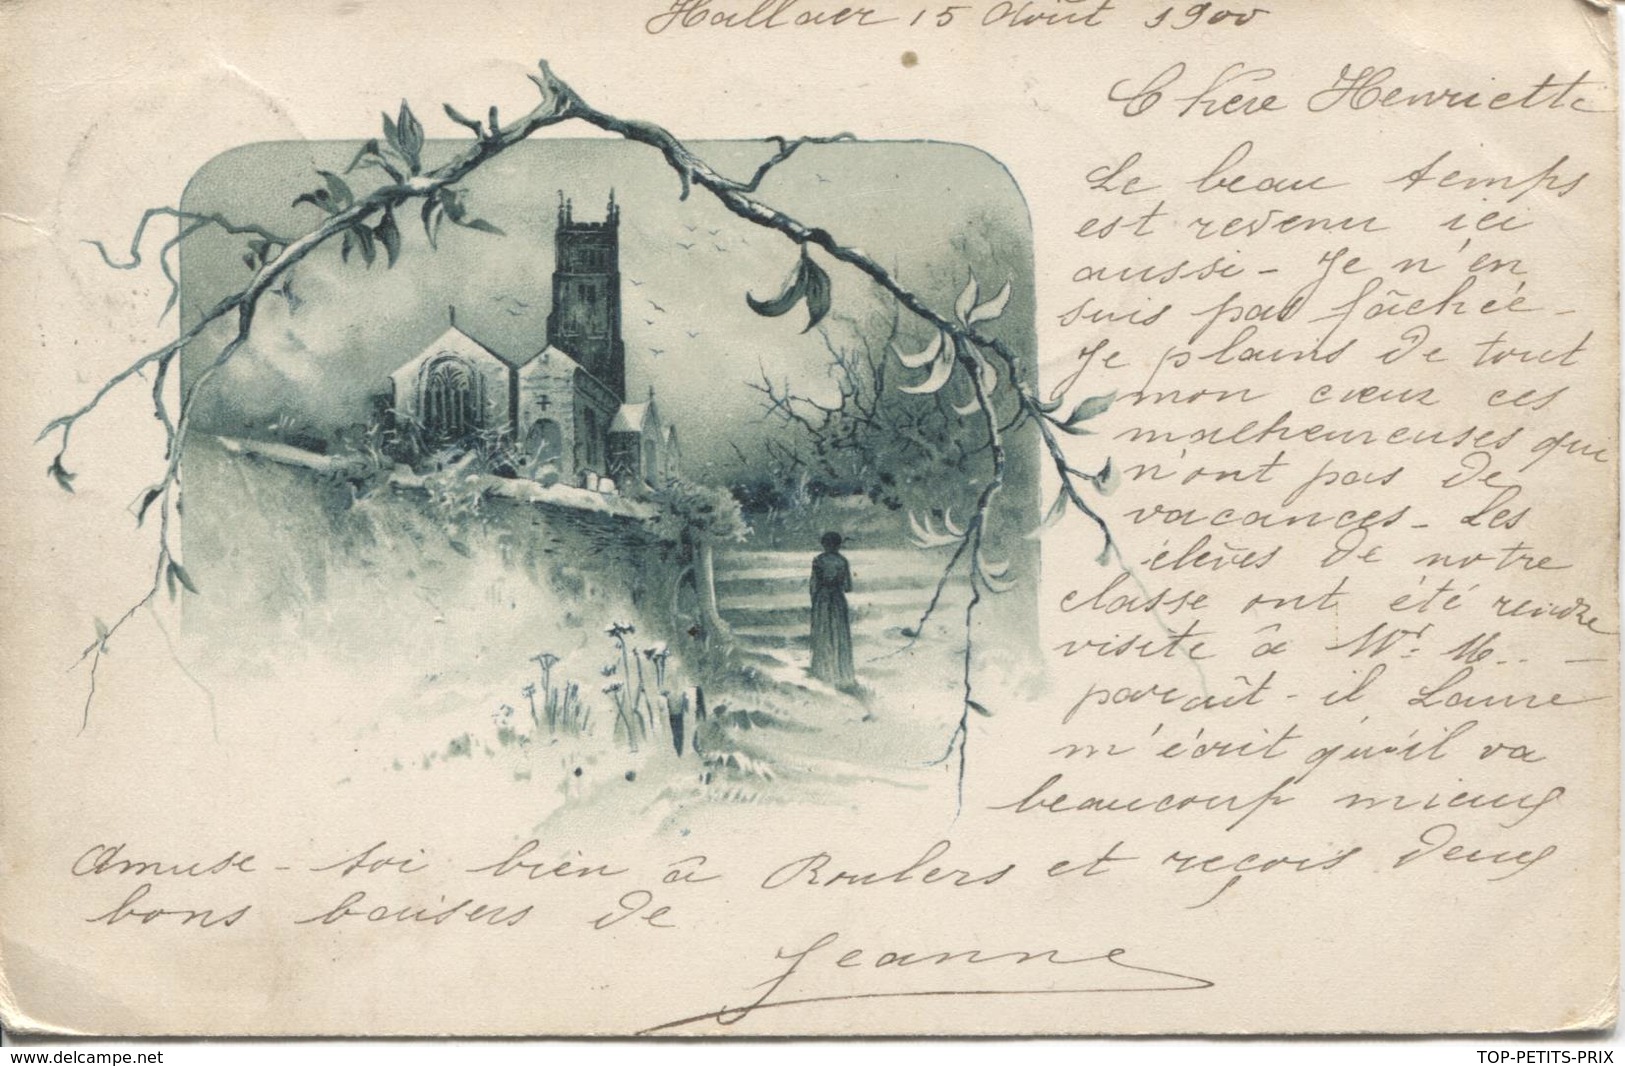 Hallaer 15 Août 1900
Chère Henriette
Le beau temps
est revenu ici
aussi - Je n'en
suis pas fâchée -
Je plains de tout
mon cœur ces
malheureuses qui
n'ont pas de
vacances - Les
élèves de notre
classe ont été rendre
visite à Mr. M.. -
paraît-il Laure
m'écrit qu'il va
beaucoup mieux
Amuse-toi bien à Roulers et reçois deux
bons baisers de
Jeanne
www.delcampe.net
TOP-PETITS-PRIX